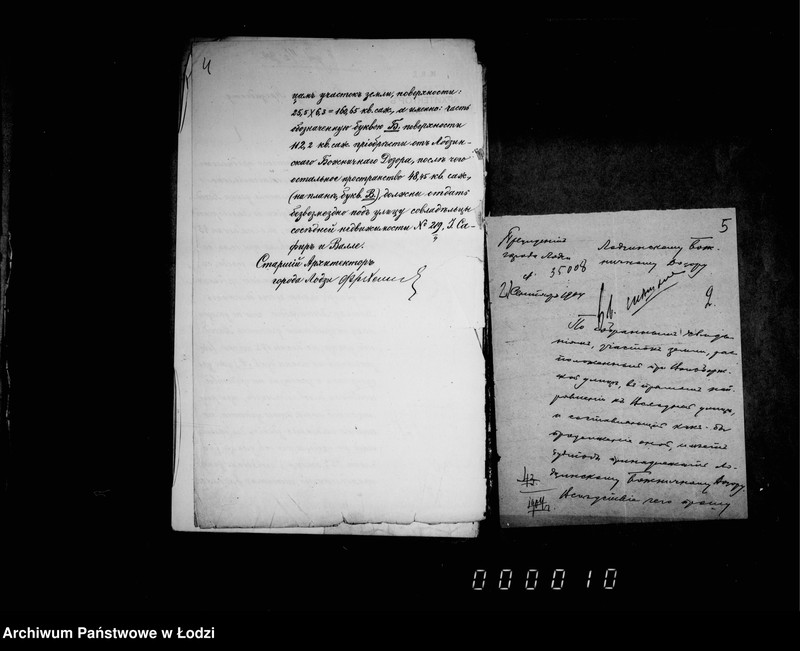 4
цамъ участокъ земли, поверхности:
25,5 X 6,3 = 160,65 кв. саж., а именно: часть
обозначенную буквою Б, поверхности
112,2 кв. саж. пріобрѣсти отъ Лодзин-
скаго Божничнаго Дозора, послѣ чего
остальное пространство 48,45 кв. саж.,
(на планѣ, букв. В.), должны отдать
безвозмездно подъ улицу совладѣльцы
сосѣдней недвижимости № 219, І. Са-
фиръ и Валле.
Старшій Архитекторъ
города Лодзи
5
Президентъ
города Лодзи
35008
Лодзинскому Бож-
ничному Дозору
2.
По собраннымъ свѣдѣ-
ніямъ, участокъ земли, рас-
положенный при
улицѣ, въ
улицы,
и составляющій какъ-бы
продолженіе оной,
принадлежитъ Ло-
дзинскому Божничному Дозору.
43
Вслѣдствіе чего прошу
1904
000010
Archiwum Państwowe w Łodzi